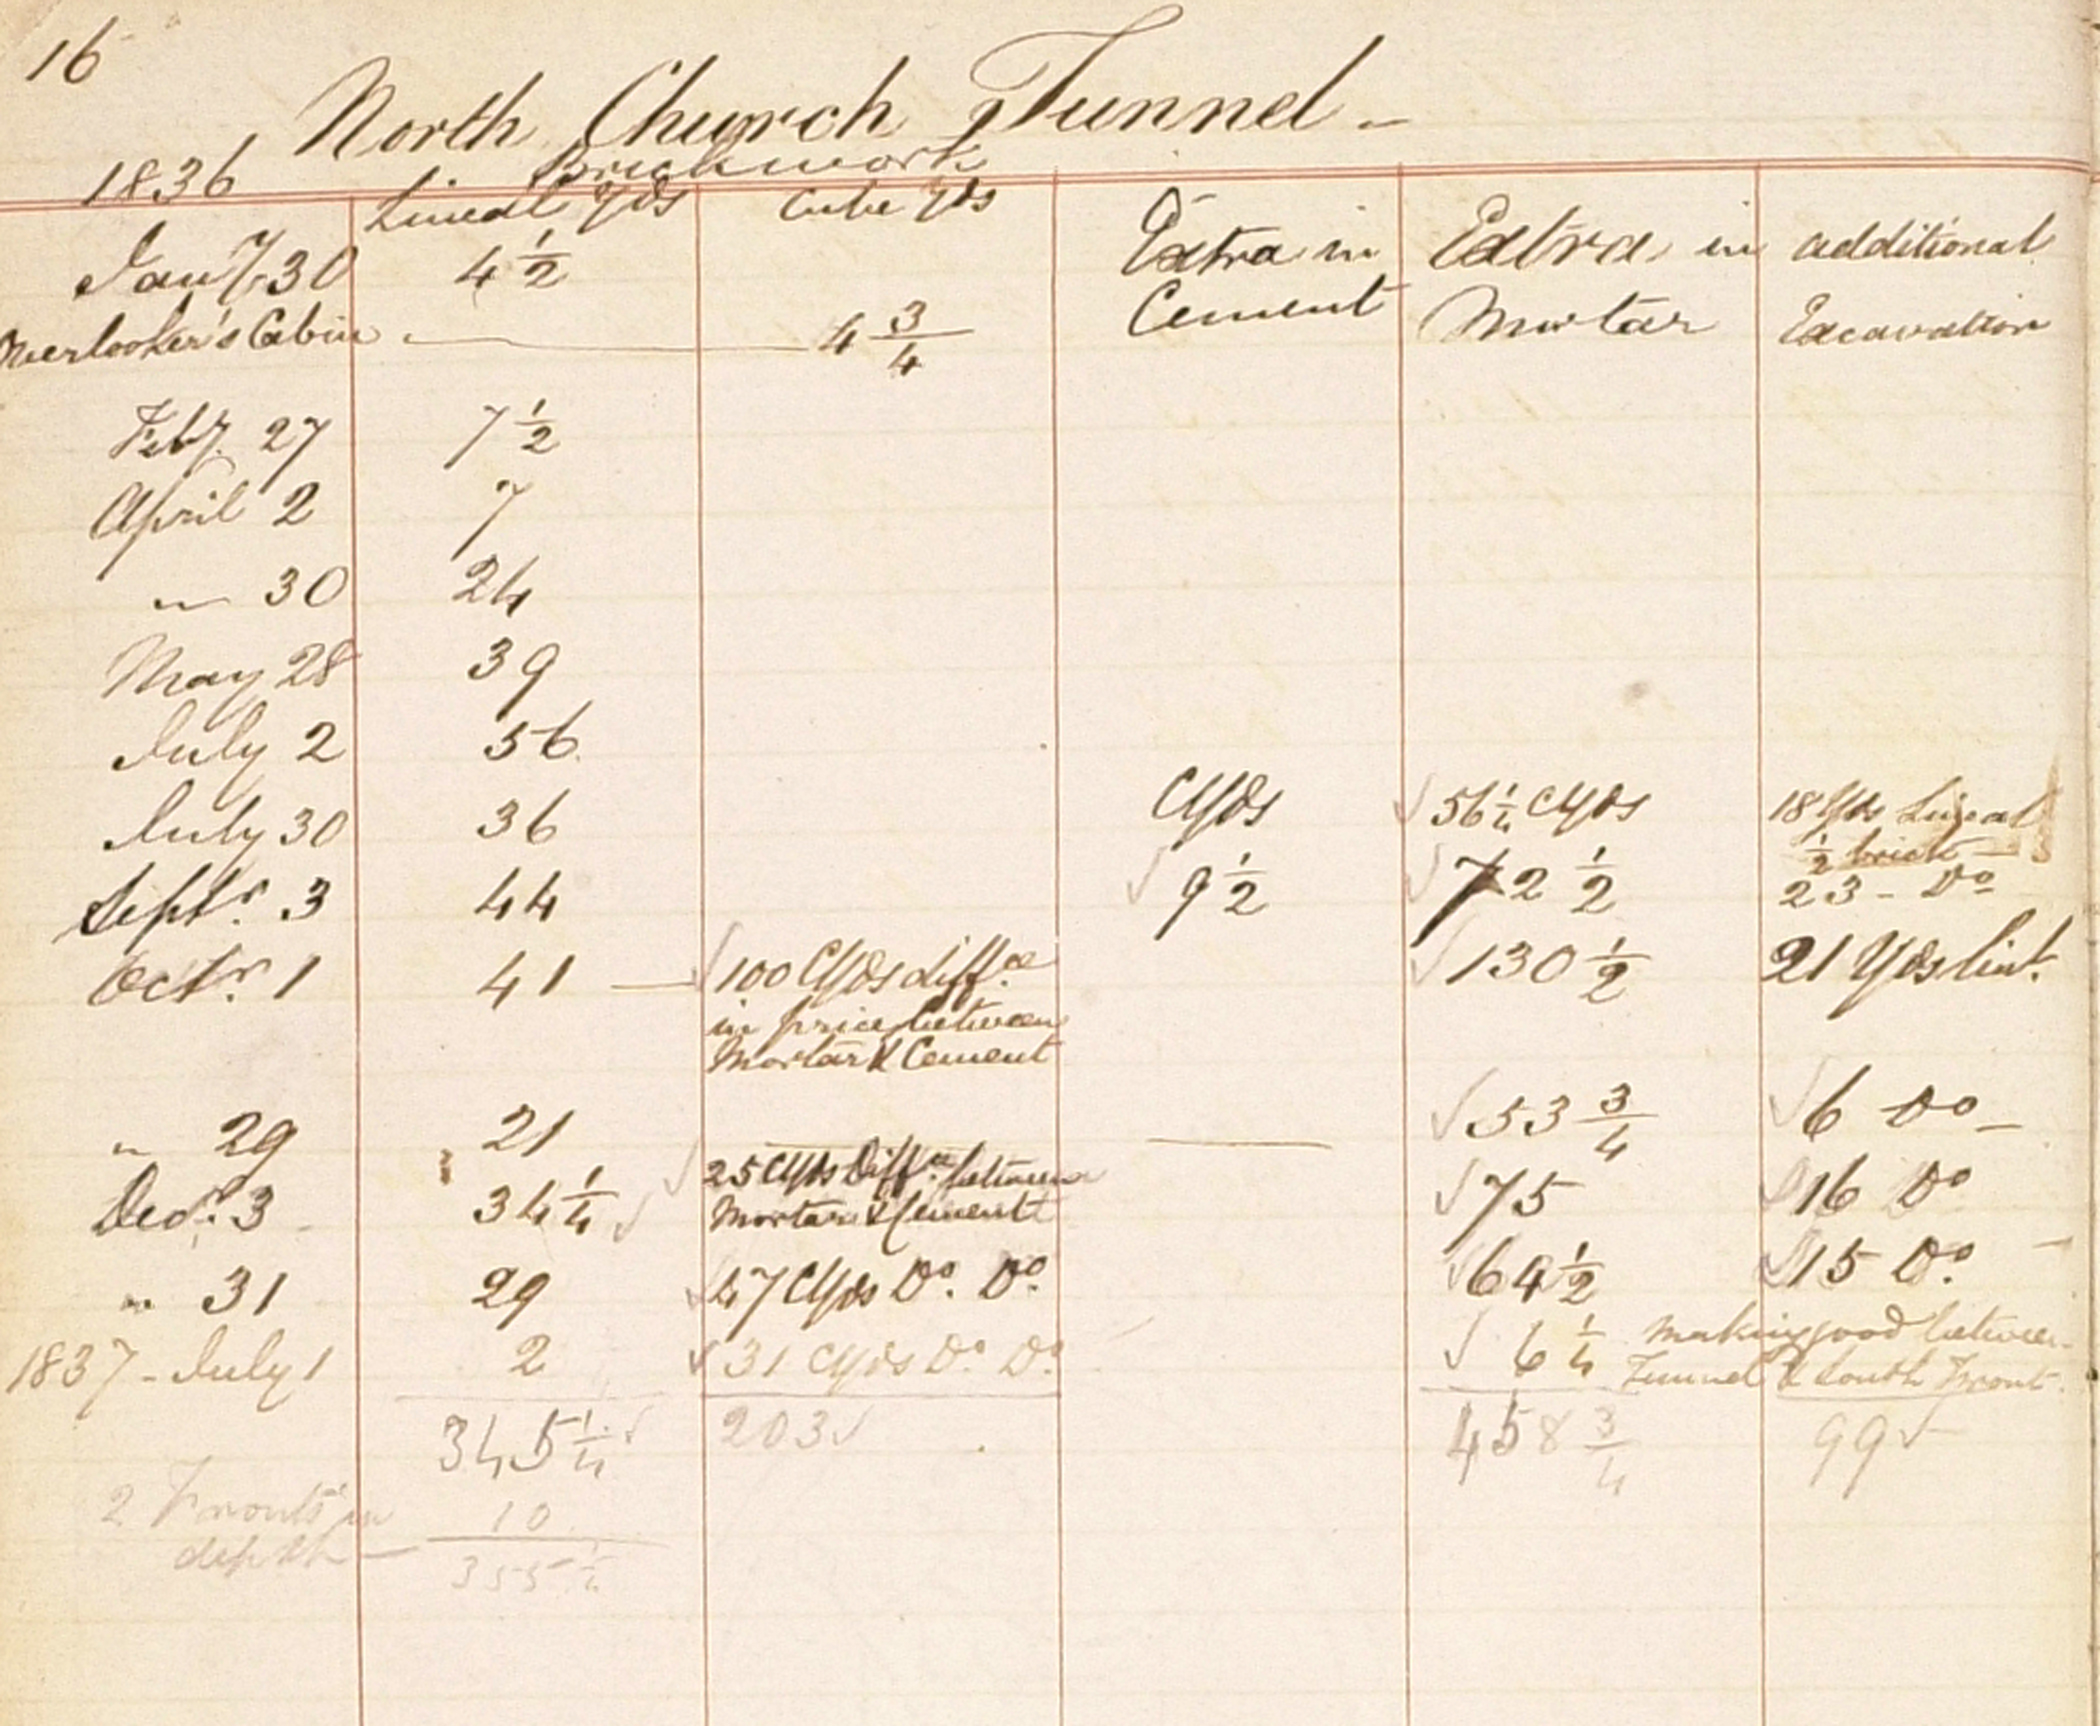 16
North Church Tunnel -
Brickwork
1836 Lineal Yds Cube Yds
Jany 30 4 1/2 Extra in Extra in additional
Overlooker's Cabin — 4 3/4 Cement Mortar Excavation
Feby. 27 7 1/2
April 2 7
" 30 24
May 28 39
July 2 56
July 30 36 CYds 56 1/4 CYds 18 Yds Lineal
1/2 brick
Septr. 3 44 9 1/2 72 1/2 23 - Do
Octr. 1 41 — 100 CYds diffce 130 1/2 21 Yds lint.
in price between
Mortar & Cement
" 29 21 — 53 3/4 6 Do -
25 CYds Diffce. between
Decr. 3 34 1/4 Mortar & Cement 75 16 Do
" 31 29 47 CYds Do. Do. 64 1/2 15 Do.
1837 - July 1 2 31 CYds Do. Do. 6 1/4 Making good between
Tunnel & South Front.
345 1/4 203 458 3/4 99
2 Fronts in 10
depth — 355 1/4